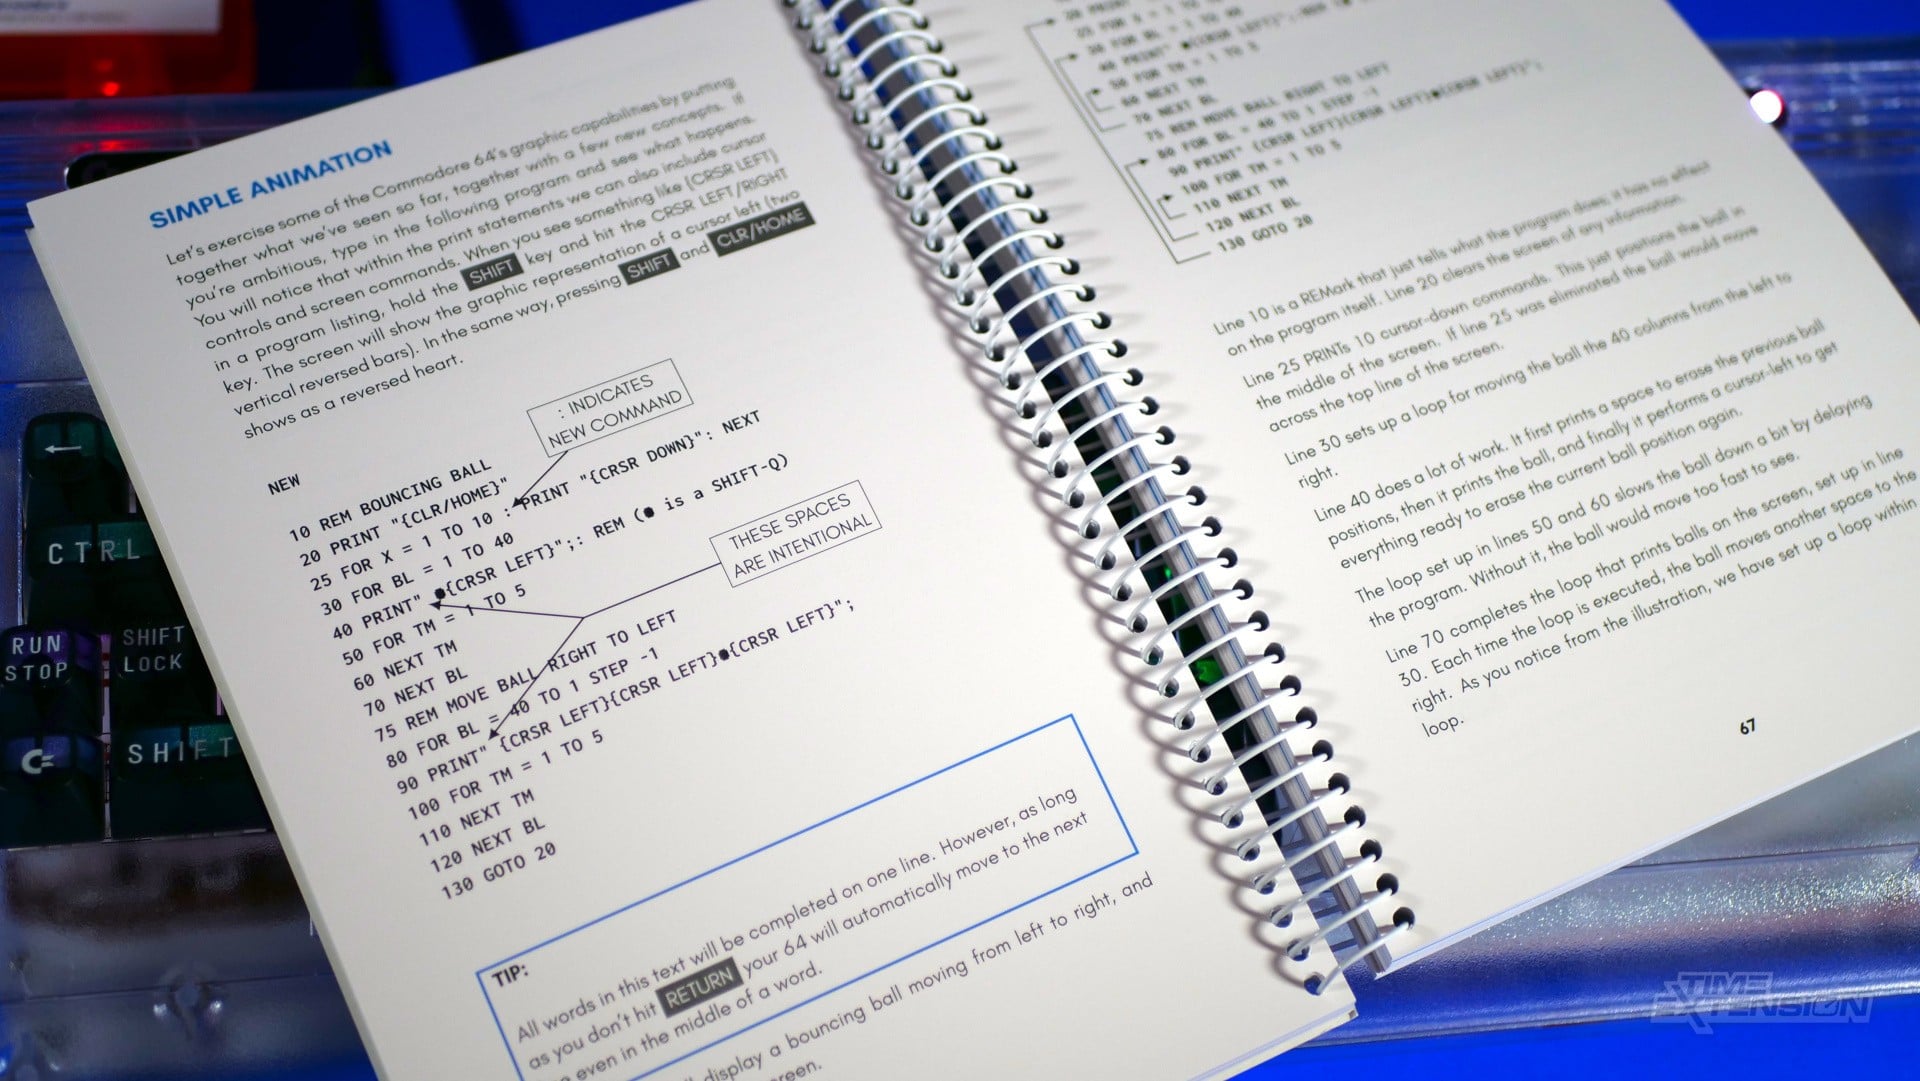 SIMPLE ANIMATION
Let's exercise some of the Commodore 64's graphic capabilities by putting
together what we've seen so far, together with a few new concepts. If
you're ambitious, type in the following program and see what happens.
You will notice that within the print statements we can also include cursor
controls and screen commands. When you see something like {CRSR LEFT}
in a program listing, hold the SHIFT key and hit the CRSR LEFT/RIGHT
key. The screen will show the graphic representation of a cursor left (two
vertical reversed bars). In the same way, pressing SHIFT and CLR/HOME
shows as a reversed heart.
: INDICATES
NEW COMMAND
NEW
10 REM BOUNCING BALL
20 PRINT "{CLR/HOME}"
25 FOR X = 1 TO 10 : PRINT "{CRSR DOWN}": NEXT
30 FOR BL = 1 TO 40
40 PRINT" ●{CRSR LEFT}";: REM (● is a SHIFT-Q)
50 FOR TM = 1 TO 5
60 NEXT TM
70 NEXT BL
75 REM MOVE BALL RIGHT TO LEFT
80 FOR BL = 40 TO 1 STEP -1
90 PRINT" {CRSR LEFT}{CRSR LEFT}●{CRSR LEFT}";
100 FOR TM = 1 TO 5
110 NEXT TM
120 NEXT BL
130 GOTO 20
THESE SPACES
ARE INTENTIONAL
TIP:
All words in this text will be completed on one line. However, as long
as you don't hit RETURN your 64 will automatically move to the next
even in the middle of a word.
display a bouncing ball moving from left to right, and
30 FOR BL = 1 TO 40
40 PRINT" ●{CRSR LEFT}";
50 FOR TM = 1 TO 5
60 NEXT TM
70 NEXT BL
75 REM MOVE BALL RIGHT TO LEFT
80 FOR BL = 40 TO 1 STEP -1
90 PRINT" {CRSR LEFT}{CRSR LEFT}●{CRSR LEFT}";
100 FOR TM = 1 TO 5
110 NEXT TM
120 NEXT BL
130 GOTO 20
Line 10 is a REMark that just tells what the program does; it has no effect
on the program itself. Line 20 clears the screen of any information.
Line 25 PRINTs 10 cursor-down commands. This just positions the ball in
the middle of the screen. If line 25 was eliminated the ball would move
across the top line of the screen.
Line 30 sets up a loop for moving the ball the 40 columns from the left to
right.
Line 40 does a lot of work. It first prints a space to erase the previous ball
positions, then it prints the ball, and finally it performs a cursor-left to get
everything ready to erase the current ball position again.
The loop set up in lines 50 and 60 slows the ball down a bit by delaying
the program. Without it, the ball would move too fast to see.
Line 70 completes the loop that prints balls on the screen, set up in line
30. Each time the loop is executed, the ball moves another space to the
right. As you notice from the illustration, we have set up a loop within
loop.
67
←
CTRL
RUN
STOP
SHIFT
LOCK
SHIFT
TIME
EXTENSION